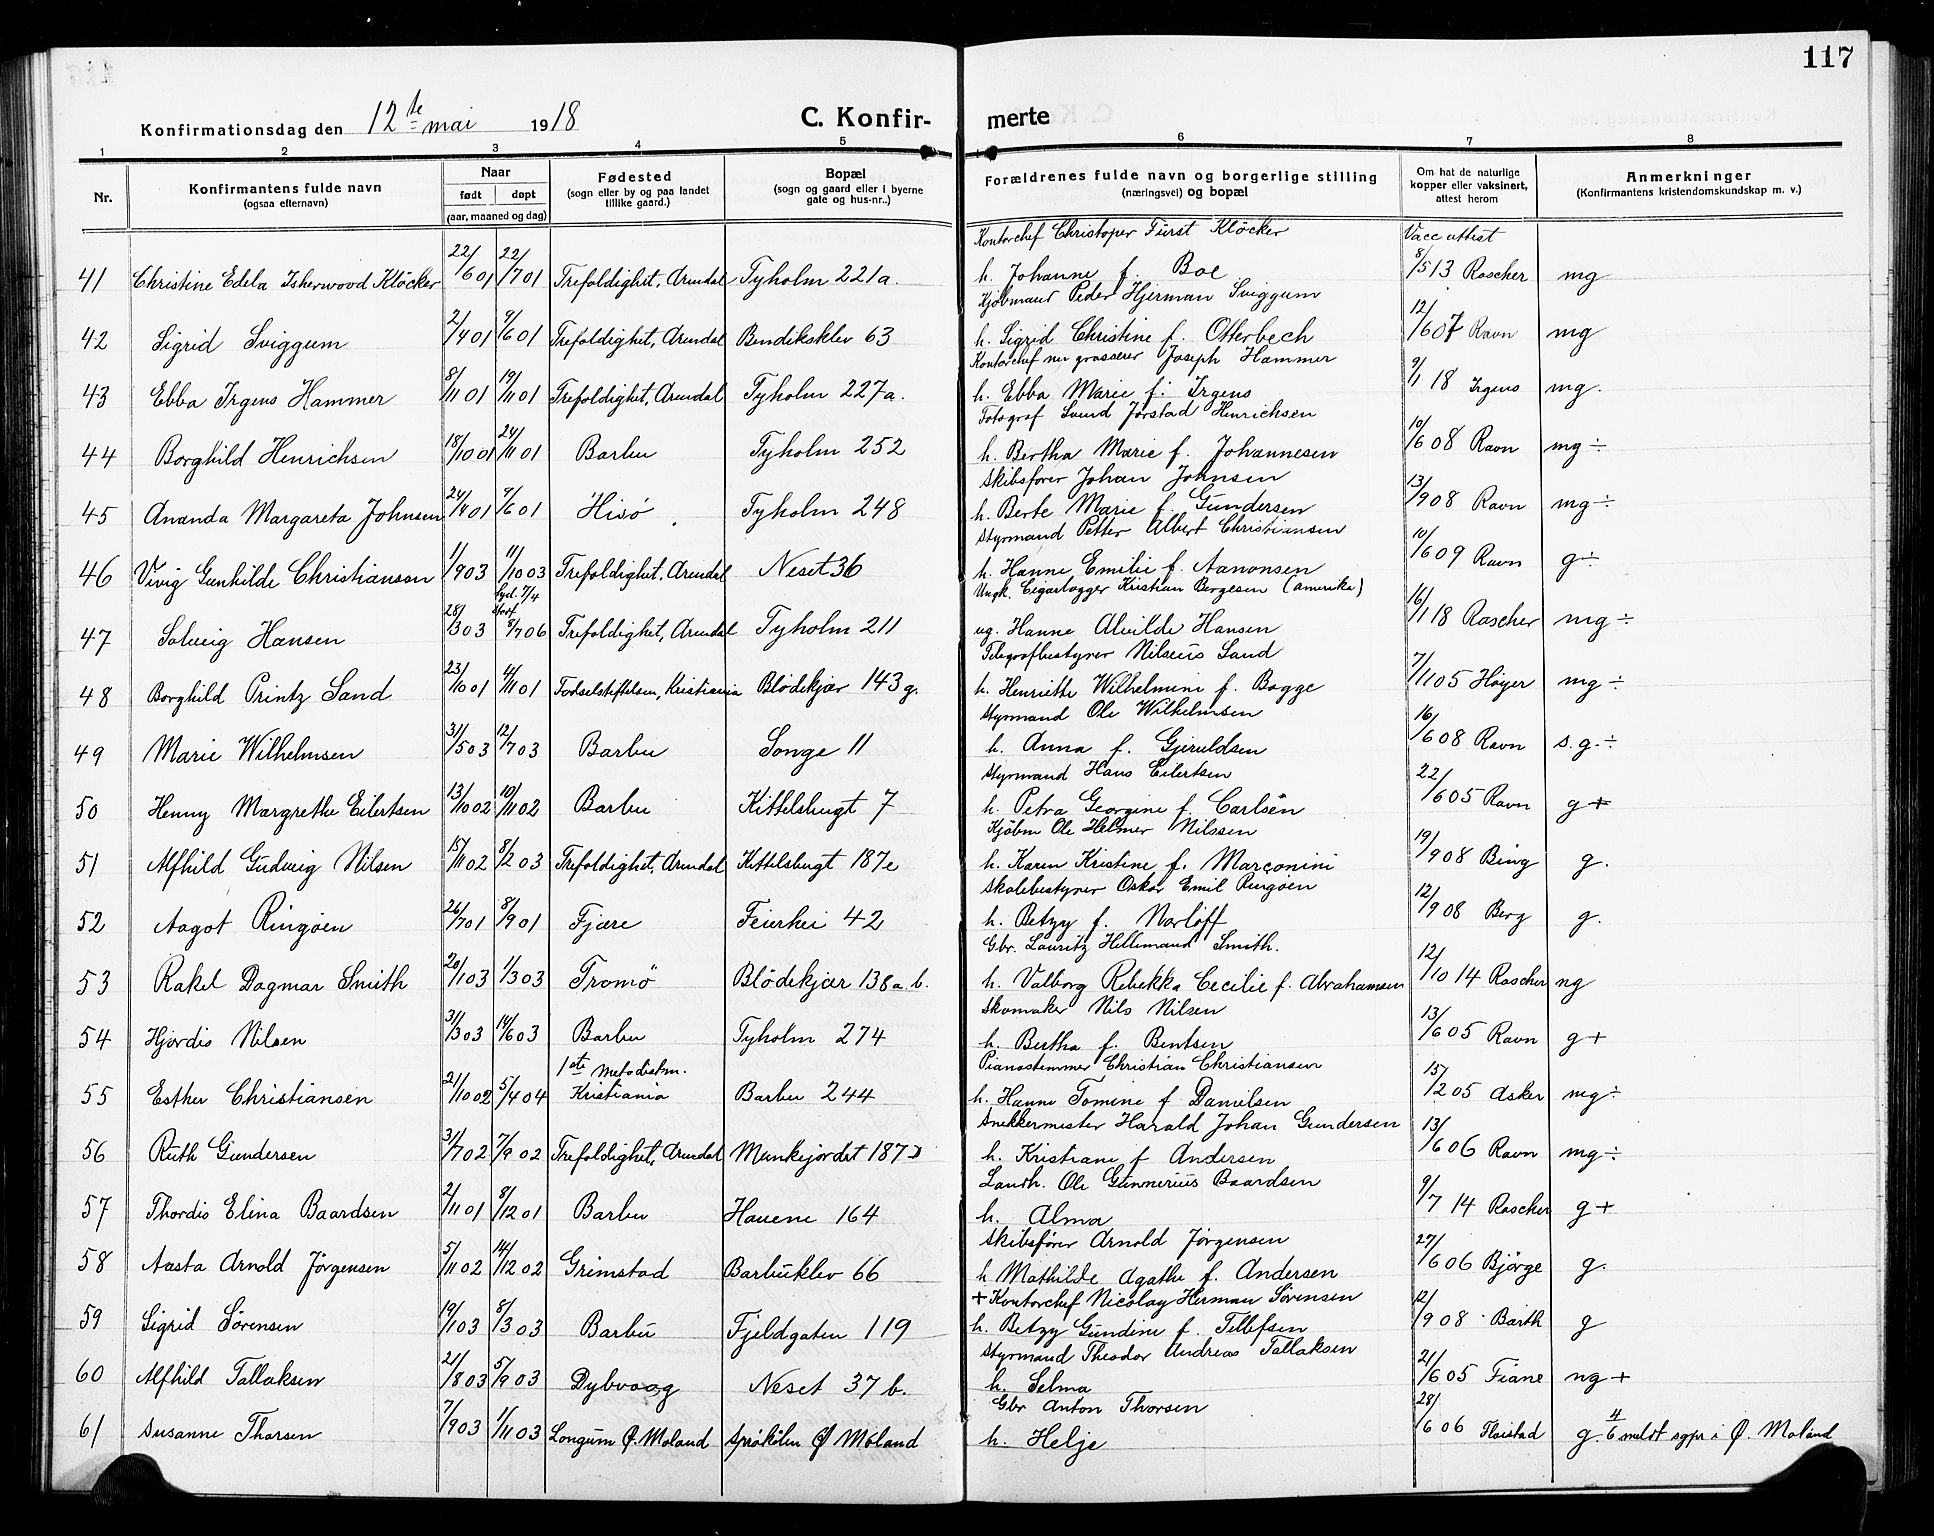 117
Konfirmationsdag den 12te mai 1918 C. Konfir- merte
1 2 3 4 5 6 7 8
Nr. Konfirmantens fulde navn (ogsaa efternavn) Naar født døpt (aar, maaned og dag) Fødested (sogn eller by og paa landet tillike gaard.) Bopæl (sogn og gaard eller i byerne gate og hus-nr..) Forældrenes fulde navn og borgerlige stilling (næringsvei) og bopæl Om hat de naturlige kopper eller vaksinert, attest herom Anmerkninger (Konfirmantens kristendomskundskap m. v.)
Kontorchef Christoper Fürst Kløcker Vacc attest
41 Christine Edela Isherwood Kløcker 22/6 01 22/7 01 Trefoldighet, Arendal Tyholm 221a. h. Johanne f. Boe 8/5 13 Rascher mg
Kjøbmand Peder Hjerman Sviggum
42 Sigrid Sviggum 2/4 01 9/6 01 Trefoldighet, Arendal Bendiksklev 63 h. Sigrid Christine f. Otterbech 12/6 07 Ravn mg
Kontorchef nu grosserer Joseph Hammer
43 Ebba Irgens Hammer 8/11 01 19/11 01 Trefoldighet, Arendal Tyholm 227a. h. Ebba Marie f. Irgens 9/1 18 Irgens mg.
Fotograf Svend Jørstad Henrichsen
44 Borghild Henrichsen 18/10 01 24/11 01 Barbu Tyholm 252 h. Bertha Marie f. Johannesen 10/6 08 Ravn mg ÷
Skibsfører Johan Johnsen
45 Ananda Margareta Johnsen 24/4 01 9/6 01 Hisø Tyholm 248 h. Berte Marie f. Gundersen 13/9 08 Ravn mg ÷
Styrmand Petter Albert Christiansen
46 Vivig Gunhilde Christiansen 1/9 03 11/10 03 Trefoldighet, Arendal Neset 36 h. Hanne Emilie f. Aanonsen 10/6 09 Ravn g ÷
Ungk. Cigarlagger Kristian Bergesen (Amerika)
47 Solveig Hansen 28/3 03 7/4 8/7 06 Trefoldighet, Arendal Tyholm 211 ug. Hanne Alvilde Hansen 16/1 18 Rascher mg ÷
Telegrafbestyrer Nilseus Sand
48 Borghild Printz Sand 23/10 01 4/11 01 Fødselstiftelsen, Kristiania Blødekjær 143 g. h. Henriette Wilhelmine f. Bagge 7/11 05 Høyer mg ÷
Styrmand Ole Wilhelmsen
49 Marie Wilhelmsen 31/5 03 12/7 03 Barbu Songe 11 h. Anna f. Gjeruldsen 16/6 08 Ravn s. g. ÷
Styrmand Hans Eilertsen
50 Henny Margrethe Eilertsen 13/10 02 10/11 02 Barbu Kittelsbugt 7 h. Petra Georgine f. Carlsen 22/6 05 Ravn g +
Kjøbm Ole Helmer Nilssen
51 Alfhild Gudveig Nilsen 15/11 02 8/2 03 Trefoldighet, Arendal Kittelsbugt 187e h. Karen Kristine f. Marconini 19/9 08 Bing g.
Skolebestyrer Oskar Emil Ringøen
52 Aagot Ringøen 26/7 01 8/9 01 Fjære Feierhei 42 h. Betzy f. Norløff 12/9 08 Berg g.
Gbr. Lauritz Hellemand Smith.
53 Rakel Dagmar Smith 20/1 03 1/3 03 Tromø Blødekjær 138a b. h. Valborg Rebekka Cecilie f. Abrahamsen 12/10 14 Rascher ng
Skomaker Nils Nilsen
54 Hjørdis Nilsen 31/3 03 14/6 03 Barbu Tyholm 274 h. Bertha f. Bentsen 13/6 05 Ravn g +
1ste Metodistm. Pianostemmer Christian Christiansen
55 Esther Christiansen 21/10 02 5/4 04 Kristiania Barbu 244 h. Hanne Tomine f Danielsen 15/2 05 Asker mg ÷
Snekkermester Harald Johan Gundersen
56 Ruth Gundersen 31/7 02 7/9 02 Trefoldighet, Arendal Munkejordet 187D h. Kristiane f Andersen 13/6 06 Ravn mg ÷
Landh. Ole Gunnerius Baardsen
57 Thordis Elina Baardsen 2/11 01 8/12 01 Barbu Havene 164 h. Alma 9/7 14 Rascher g +
Skibsfører Arnold Jørgensen
58 Aasta Arnold Jørgensen 5/11 02 14/12 02 Grimstad Barbuklev 66 h Mathilde Agathe f. Andersen 27/6 06 Bjørge g.
+ Kontorchef Nicolay Herman Sørensen
59 Sigrid Sørensen 19/1 03 8/3 03 Barbu Fjeldgaten 119 h. Betzy Gundine f. Tellefsen 12/9 08 Barth g
Styrmand Theodor Andreas Tallaksen
60 Alfhild Tallaksen 21/8 03 5/9 03 Dybvaag Neset 37 b. h. Selma 21/6 05 Fiane ng +
Gbr Anton Thorsen
61 Susanne Thorsen 7/9 03 1/11 03 Longum Ø. Moland Ø Moland h. Helje 28/6 06 Flaistad g. 4/6 meldt sgpr i Ø. Moland